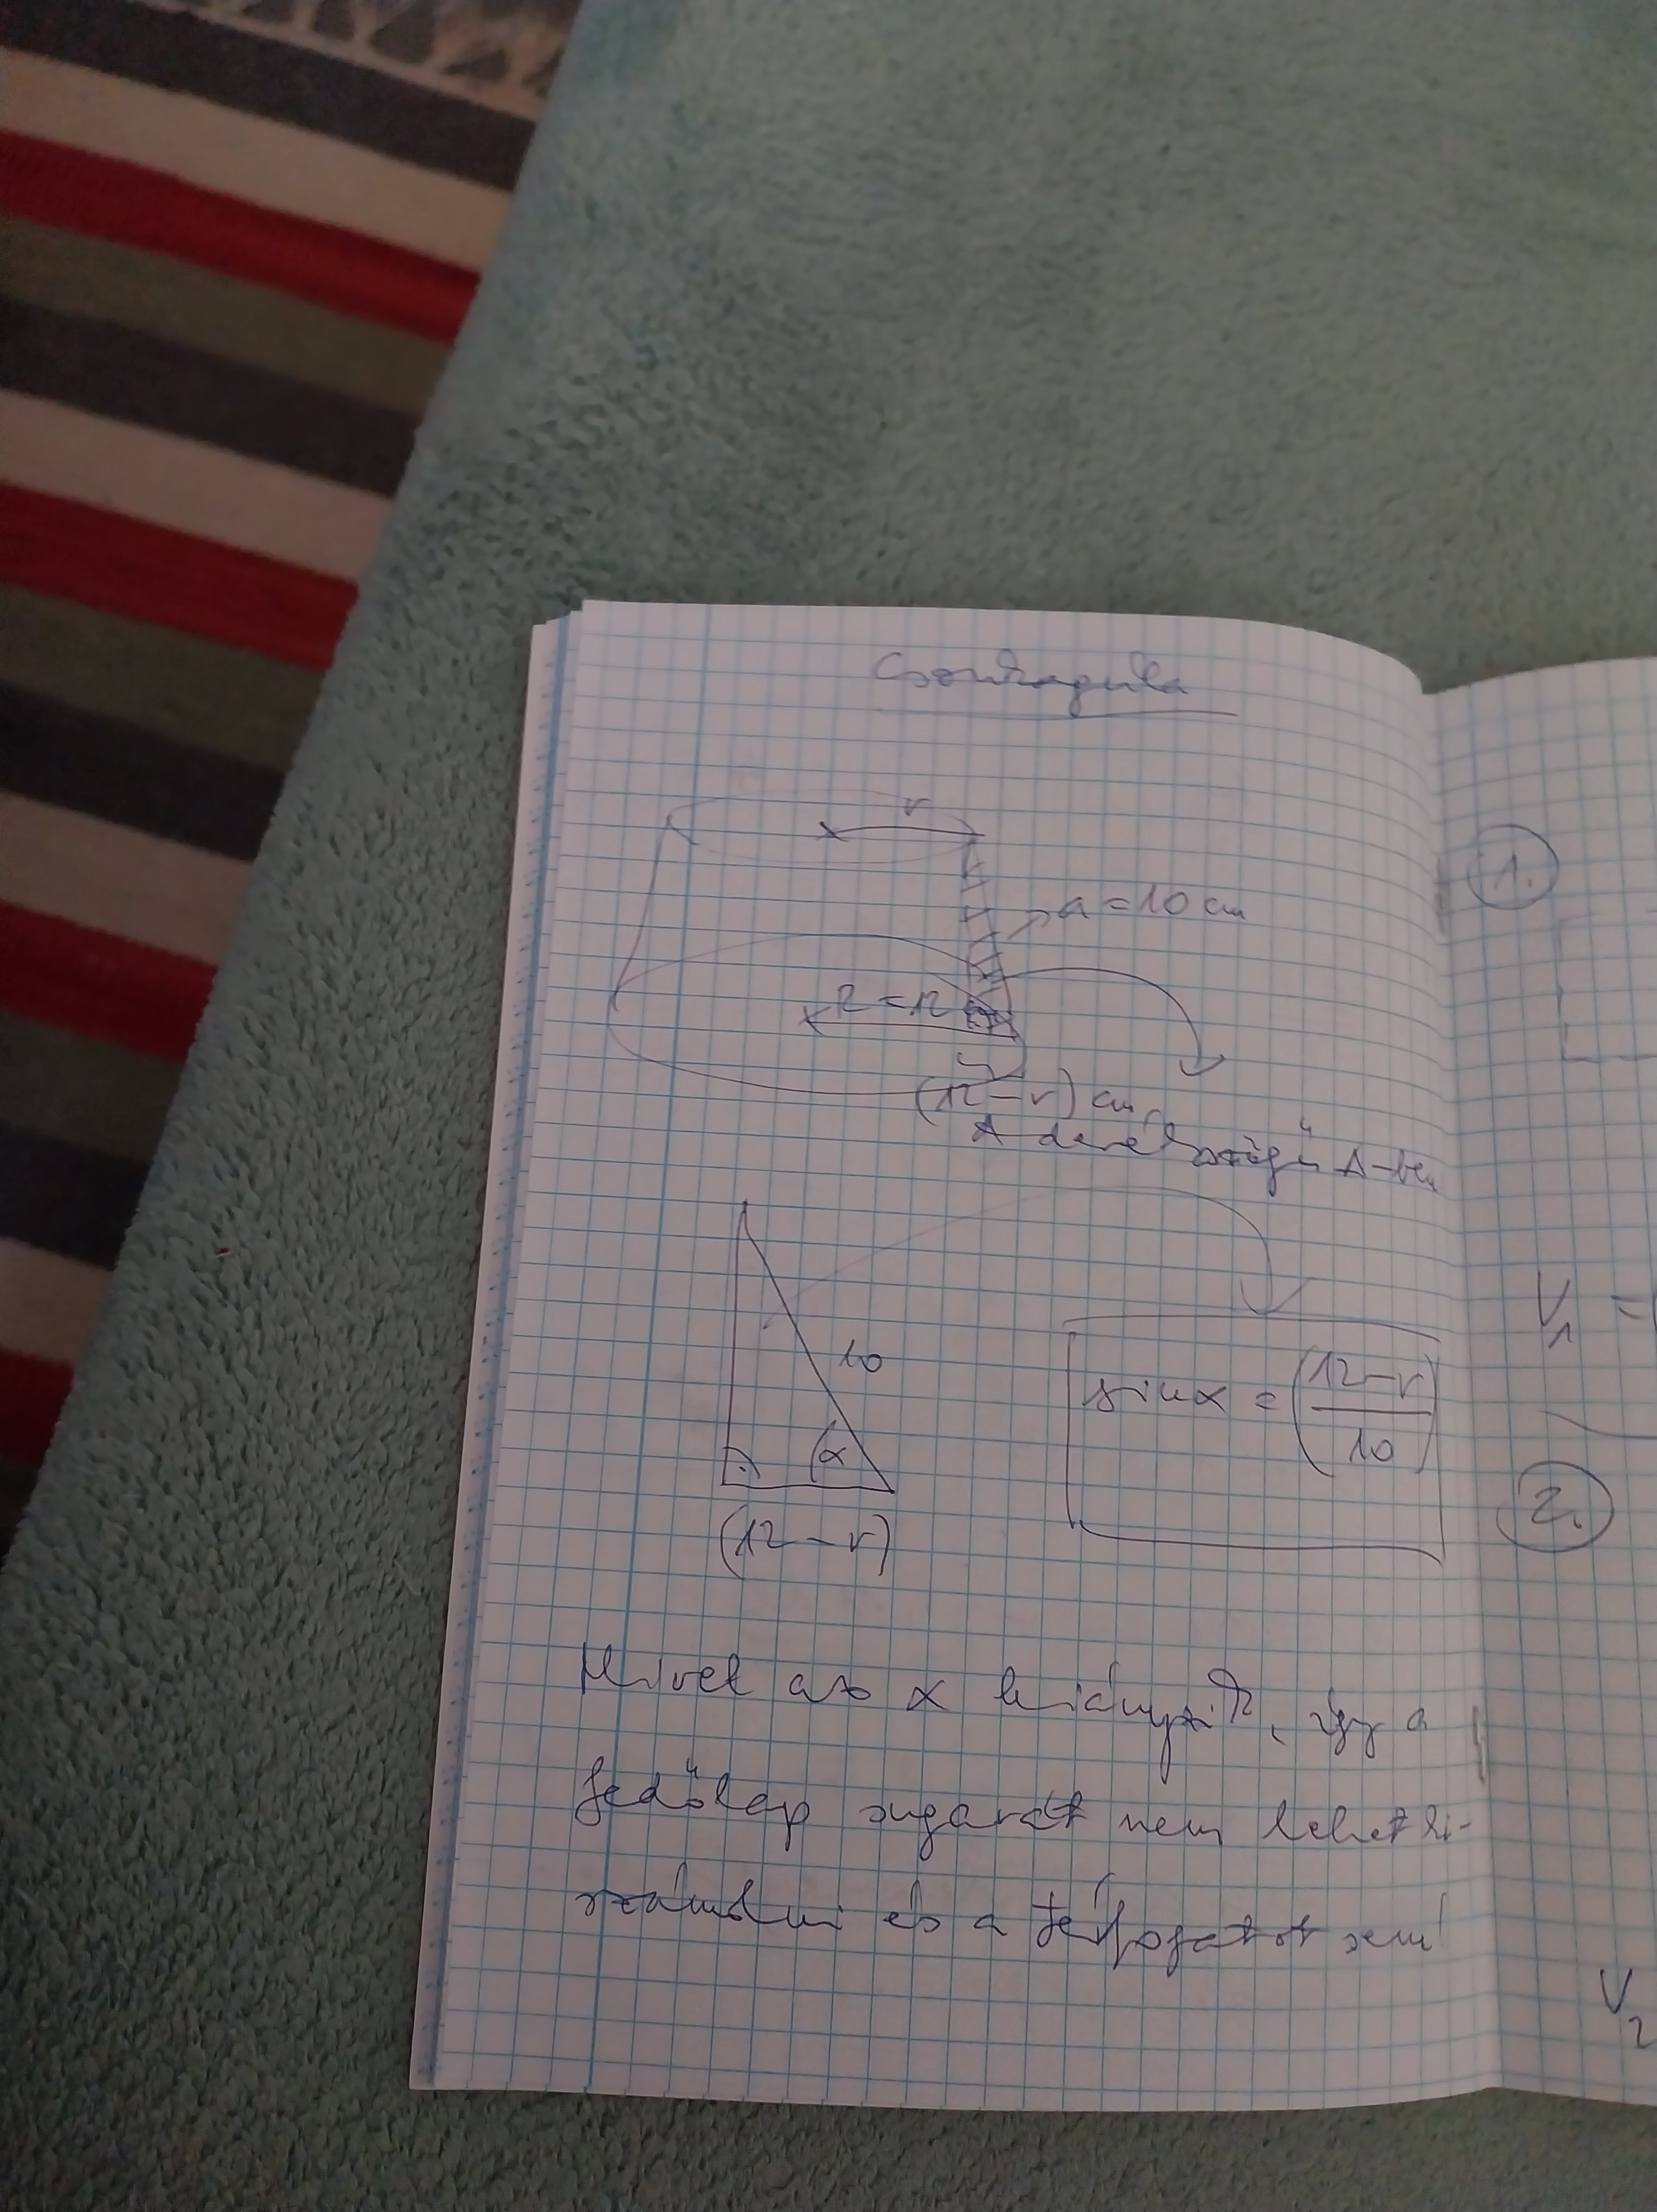 Csonkagúla
r
a = 10 cm
R = 12
(12-r) cm
A derékszögű Δ-ben
10
α
sin α = (12-r / 10)
(12-r)
Mivel az α hiányzik, így a
fedőlap sugarát nem lehet ki-
számolni és a térfogatot sem!
1.
V₁ =
2.
V₂